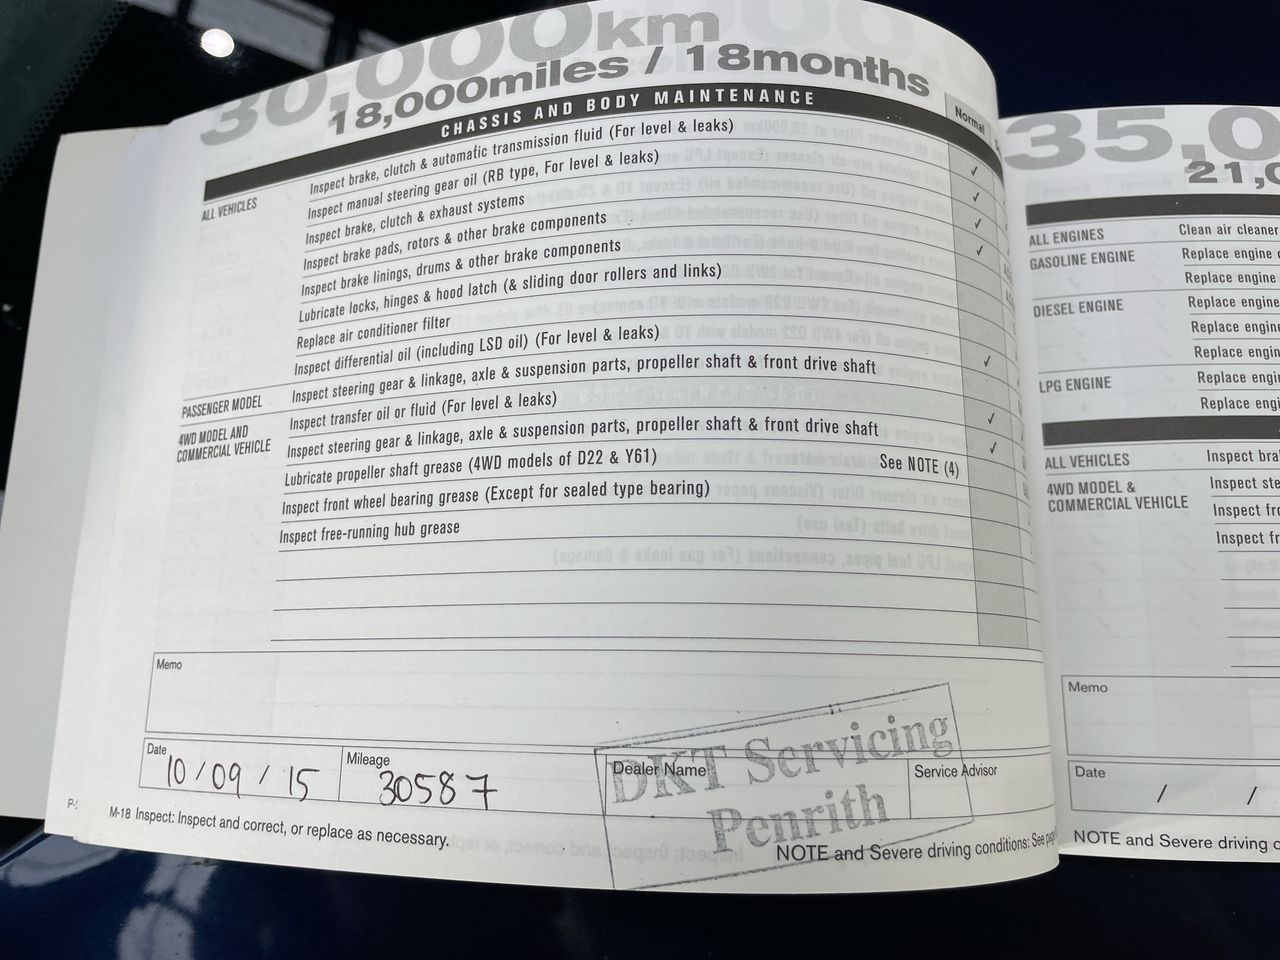 30,000km
18,000miles / 18months
CHASSIS AND BODY MAINTENANCE
Normal
ALL VEHICLES
Inspect brake, clutch & automatic transmission fluid (For level & leaks)
Inspect manual steering gear oil (RB type, For level & leaks)
Inspect brake, clutch & exhaust systems
Inspect brake pads, rotors & other brake components
Inspect brake linings, drums & other brake components
Lubricate locks, hinges & hood latch (& sliding door rollers and links)
Replace air conditioner filter
Inspect differential oil (including LSD oil) (For level & leaks)
PASSENGER MODEL
Inspect steering gear & linkage, axle & suspension parts, propeller shaft & front drive shaft
4WD MODEL AND
COMMERCIAL VEHICLE
Inspect transfer oil or fluid (For level & leaks)
Inspect steering gear & linkage, axle & suspension parts, propeller shaft & front drive shaft
Lubricate propeller shaft grease (4WD models of D22 & Y61) See NOTE (4)
Inspect front wheel bearing grease (Except for sealed type bearing)
Inspect free-running hub grease
Memo
Date
10/09/15
Mileage
30587
Dealer Name
DKT Servicing
Penrith
Service Advisor
M-18 Inspect: Inspect and correct, or replace as necessary.
NOTE and Severe driving conditions: See
35,0
21,0
ALL ENGINES Clean air cleaner
GASOLINE ENGINE Replace engine
Replace engine
DIESEL ENGINE Replace engine
Replace engin
Replace engin
LPG ENGINE Replace engi
Replace engi
ALL VEHICLES Inspect bra
4WD MODEL &
COMMERCIAL VEHICLE
Inspect ste
Inspect fro
Inspect fr
Memo
Date
/ /
NOTE and Severe driving c